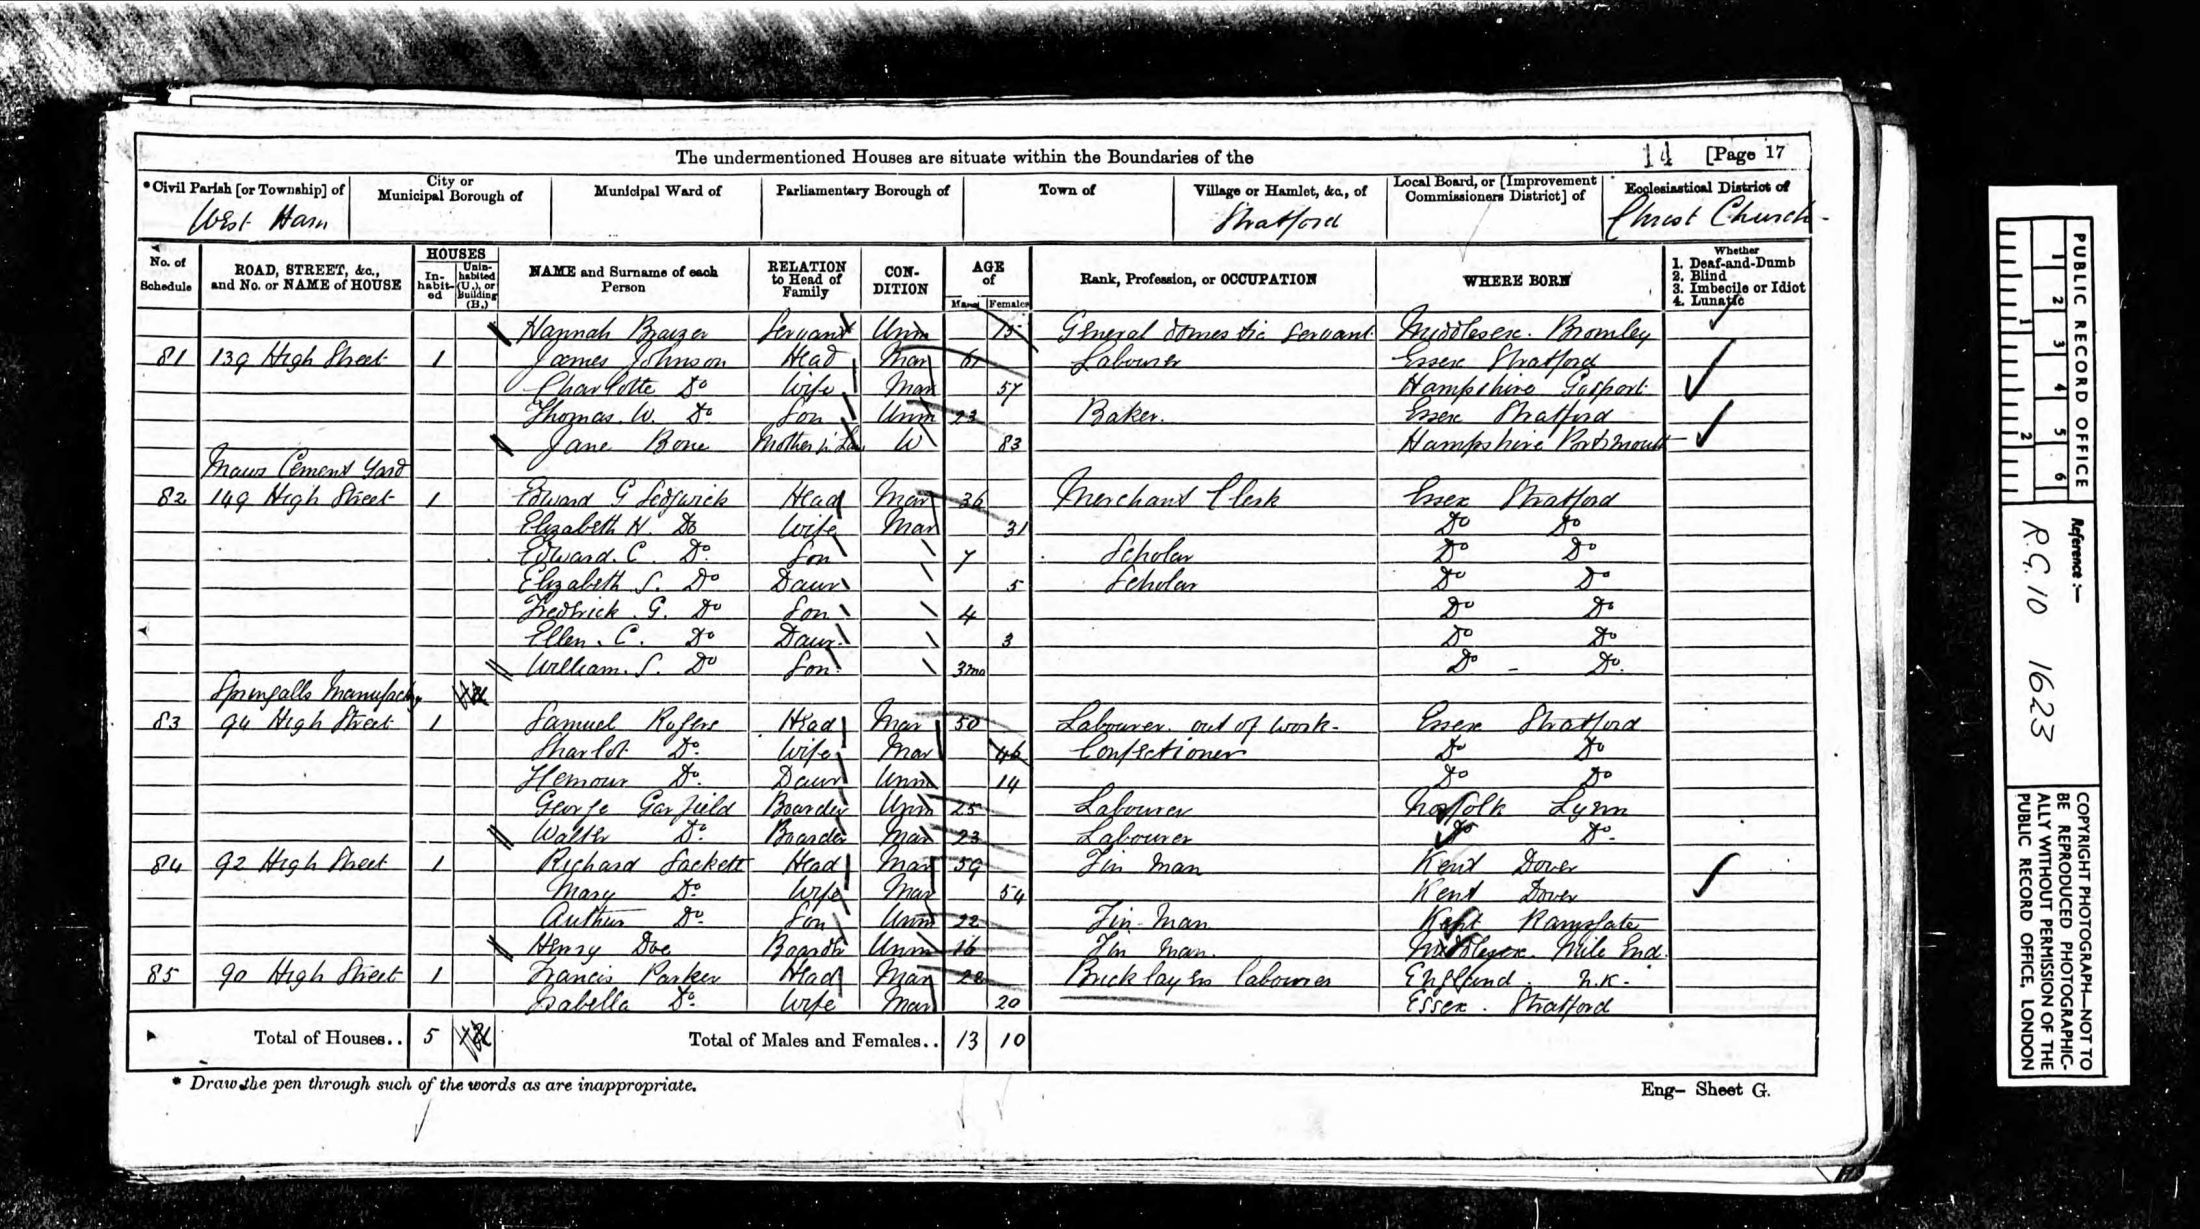 The undermentioned Houses are situate within the Boundaries of the 14 [Page 17
*Civil Parish [or Township] of City or Municipal Borough of Municipal Ward of Parliamentary Borough of Town of Village or Hamlet, &c., of Local Board, or [Improvement Commissioners District] of Ecclesiastical District of
West Ham Stratford Christ Church
No. of Schedule ROAD, STREET, &c., and No. or NAME of HOUSE HOUSES Inhabited Uninhabited (U.), or Building (B.) NAME and Surname of each Person RELATION to Head of Family CONDITION AGE of Males Females Rank, Profession, or OCCUPATION WHERE BORN Whether 1. Deaf-and-Dumb 2. Blind 3. Imbecile or Idiot 4. Lunatic
Hannah Braizer Servant Unm 15 General domestic Servant Middlesex. Bromley
81 139 High Street 1 James Johnson Head Mar 61 Labourer Essex Stratford
Charlotte Do Wife Mar 57 Hampshire Gosport
Thomas. W. Do Son Unm 23 Baker. Essex Stratford
Jane Bone Mother in Law W 83 Hampshire Portsmouth
Maws Cement Yard
82 149 High Street 1 Edward G Sedgwick Head Mar 36 Merchant Clerk Essex Stratford
Elizabeth H. Do Wife Mar 31 Do Do
Edward. C. Do. Son 7 Scholar Do Do
Elizabeth S. Do Daur 5 Scholar Do Do
Fredrick. G. Do Son 4 Do Do
Ellen. C. Do Daur. 3 Do Do
William. S. Do Son. 3mo Do - Do.
Springalls Manufactory
83 94 High Street 1 Samuel Rogers Head Mar 50 Labourer. out of work- Essex Stratford
Sharlot Do. Wife Mar 46 Confectioner Do Do
Do. Daur Unm 14 Do Do
George Garfield Boarder Unm 25 Labourer Norfolk Lynn
Walter Do. Boarder Mar 23 Labourer Do Do-
84 92 High Street 1 Richard Sackett Head Mar 59 Tin Man Kent Dover
Mary Do. Wife Mar 54 Kent Dover
Author Do. Son Unm 22 Tin-Man Kent Ramsgate
Henry Doe Boarder Unm 16 Tin Man. Middlesex. Mile End.
85 90 High Street 1 Francis Parker Head Mar 22 Bricklayers labourer England. N.K.
Isabella Do. Wife Mar 20 Essex. Stratford
Total of Houses.. 5 Total of Males and Females.. 13 10
* Draw the pen through such of the words as are inappropriate.
Eng- Sheet G.
PUBLIC RECORD OFFICE
1 2 3 4 5 6
1 2
Reference :-
R.G. 10 1623
COPYRIGHT PHOTOGRAPH—NOT TO
BE REPRODUCED PHOTOGRAPHIC-
ALLY WITHOUT PERMISSION OF THE
PUBLIC RECORD OFFICE, LONDON